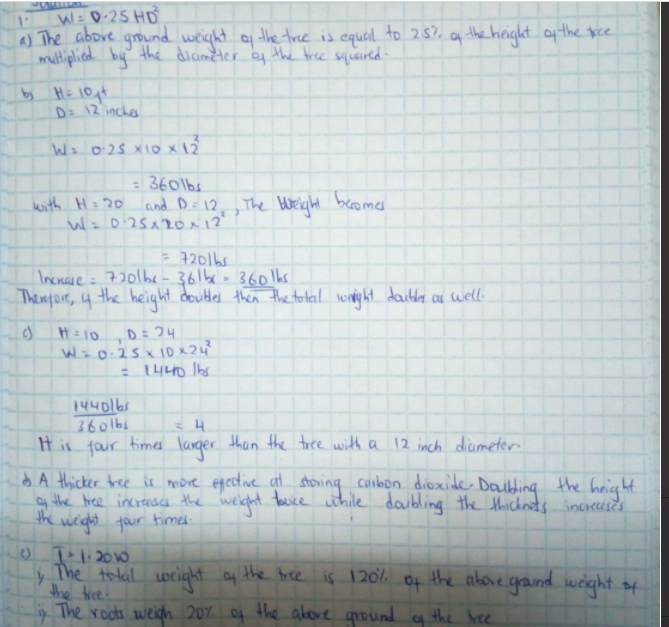 Solution
1. W = 0.25 HD²
a) The above ground weight of the tree is equal to 25% of the height of the tree
multiplied by the diameter of the tree squared.
b) H = 10ft
D = 12 inches
W = 0.25 × 10 × 12²
= 360lbs
with H = 20 and D = 12, The Weight becomes
W = 0.25 × 20 × 12²
= 720lbs
Increase = 720lbs - 36lbs = 360lbs
Therefore, if the height doubles then the total weight doubles as well.
c) H = 10, D = 24
W = 0.25 × 10 × 24²
= 1440 lbs
1440lbs
360lbs = 4
It is four times larger than the tree with a 12 inch diameter.
d) A thicker tree is more effective at storing carbon dioxide. Doubling the height
of the tree increases the weight twice while doubling the thickness increases
the weight four times.
e) T = 1.20W
i) The total weight of the tree is 120% of the above ground weight of
the tree.
ii) The roots weigh 20% of the above ground of the tree